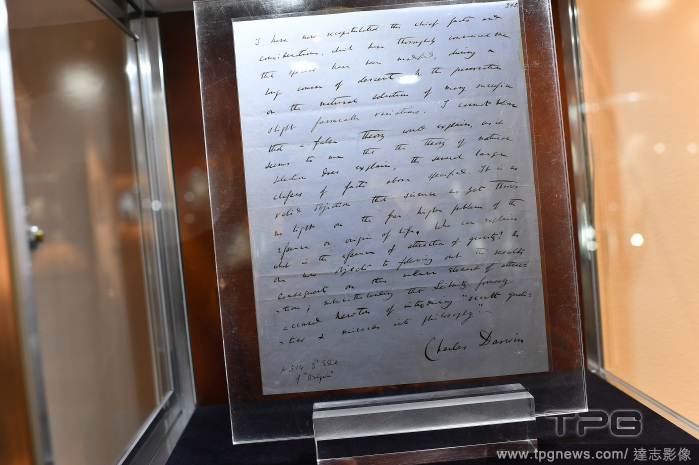 I have now recapitulated the chief facts and
considerations, which have thoroughly convinced me
that species have been modified, during a
long course of descent by the preservation
or the natural selection of many successive
slight favourable variations. I cannot believe
that a false theory would explain, as it
seems to me that the theory of natural
selection does explain, the several large
classes of facts above specified. It is no
valid objection that science as yet throws
no light on the far higher problem of the
essence or origin of life. Who can explain
what is the essence of attraction of gravity? No
one now objects to following out the results
consequent on this unknown element of attrac
-tion; notwithstanding that Leibnitz formerly
accused Newton of introducing "occult quali-
-ties & miracles into philosophy".—
Charles Darwin
p. 514 3d Edit
of "Origin"
TPG
www.tpgnews.com/ 達志影像